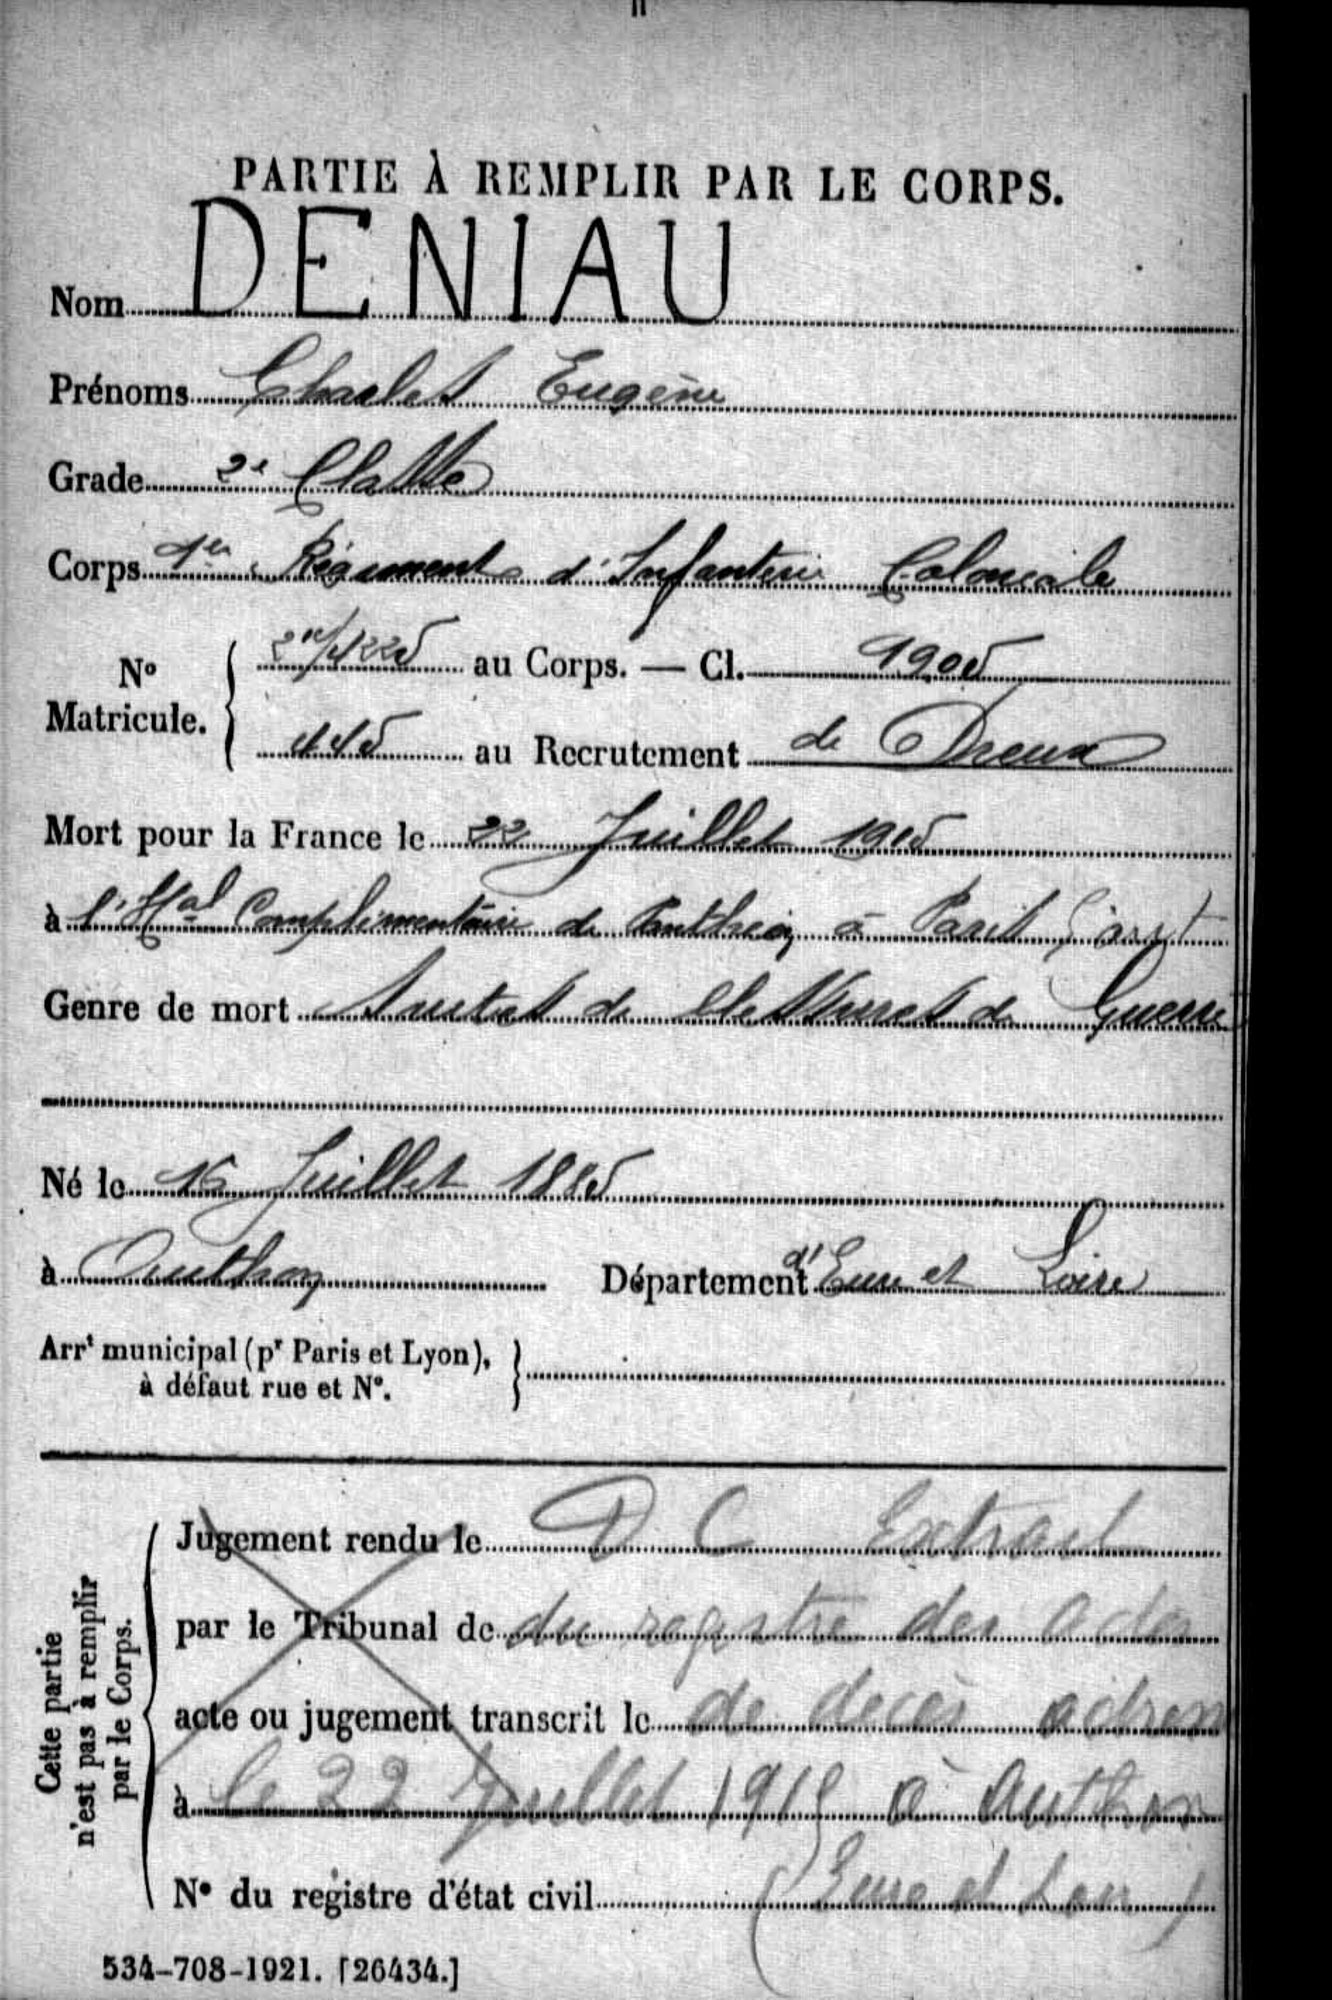 PARTIE À REMPLIR PAR LE CORPS.
Nom DENIAU
Prénoms Charles Eugène
Grade 2e Classe
Corps 1er Régiment d'Infanterie Coloniale
N° Matricule. au Corps. — Cl. 1905
445 au Recrutement de Dreux
Mort pour la France le 22 Juillet 1915
à l'Hal Complémentaire du Panthéon à Paris
Genre de mort Suites de blessures de Guerre
Né le 16 Juillet 1885
à Authon Département d'Eure et Loire
Arrt municipal (pr Paris et Lyon),
à défaut rue et N°.
Cette partie
n'est pas à remplir
par le Corps.
Jugement rendu le D C Extrait
par le Tribunal de du registre des actes
acte ou jugement transcrit le de décès
à le 22 Juillet 1915 à Authon
N° du registre d'état civil (Eure et Loir)
534-708-1921. [26434.]